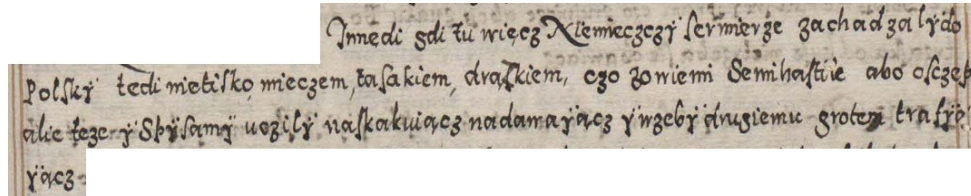 Innedi gdi tu więcz Niemieczczÿ sermierze zachadzalÿ do
Polskÿ tedi nietilko mieczem, tasakiem, drążkiem, czo zowiemi Semihastue abo osczep
alie teze ÿ Spÿsamÿ uczilÿ naskakuiącz nadawaÿącz ÿ wzebÿ drugiemu grotem trafÿo
ÿącz